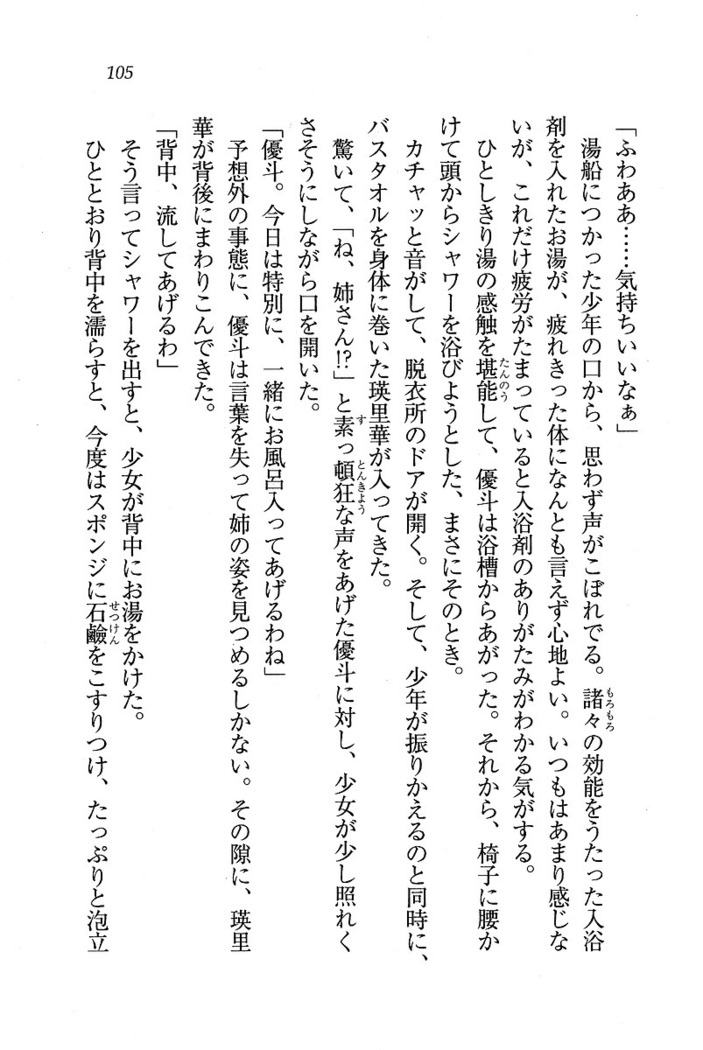 105
「ふわああ……気持ちいいなぁ」
湯船につかった少年の口から、思わず声がこぼれでる。諸々の効能をうたった入浴
剤を入れたお湯が、疲れきった体になんとも言えず心地よい。いつもはあまり感じな
いが、これだけ疲労がたまっていると入浴剤のありがたみがわかる気がする。
ひとしきり湯の感触を堪能して、優斗は浴槽からあがった。それから、椅子に腰か
けて頭からシャワーを浴びようとした、まさにそのとき。
カチャッと音がして、脱衣所のドアが開く。そして、少年が振りかえるのと同時に、
バスタオルを身体に巻いた瑛里華が入ってきた。
驚いて、「ね、姉さん!?」と素っ頓狂な声をあげた優斗に対し、少女が少し照れく
さそうにしながら口を開いた。
「優斗。今日は特別に、一緒にお風呂入ってあげるわね」
予想外の事態に、優斗は言葉を失って姉の姿を見つめるしかない。その隙に、瑛里
華が背後にまわりこんできた。
「背中、流してあげるわ」
そう言ってシャワーを出すと、少女が背中にお湯をかけた。
ひととおり背中を濡らすと、今度はスポンジに石鹼をこすりつけ、たっぷりと泡立